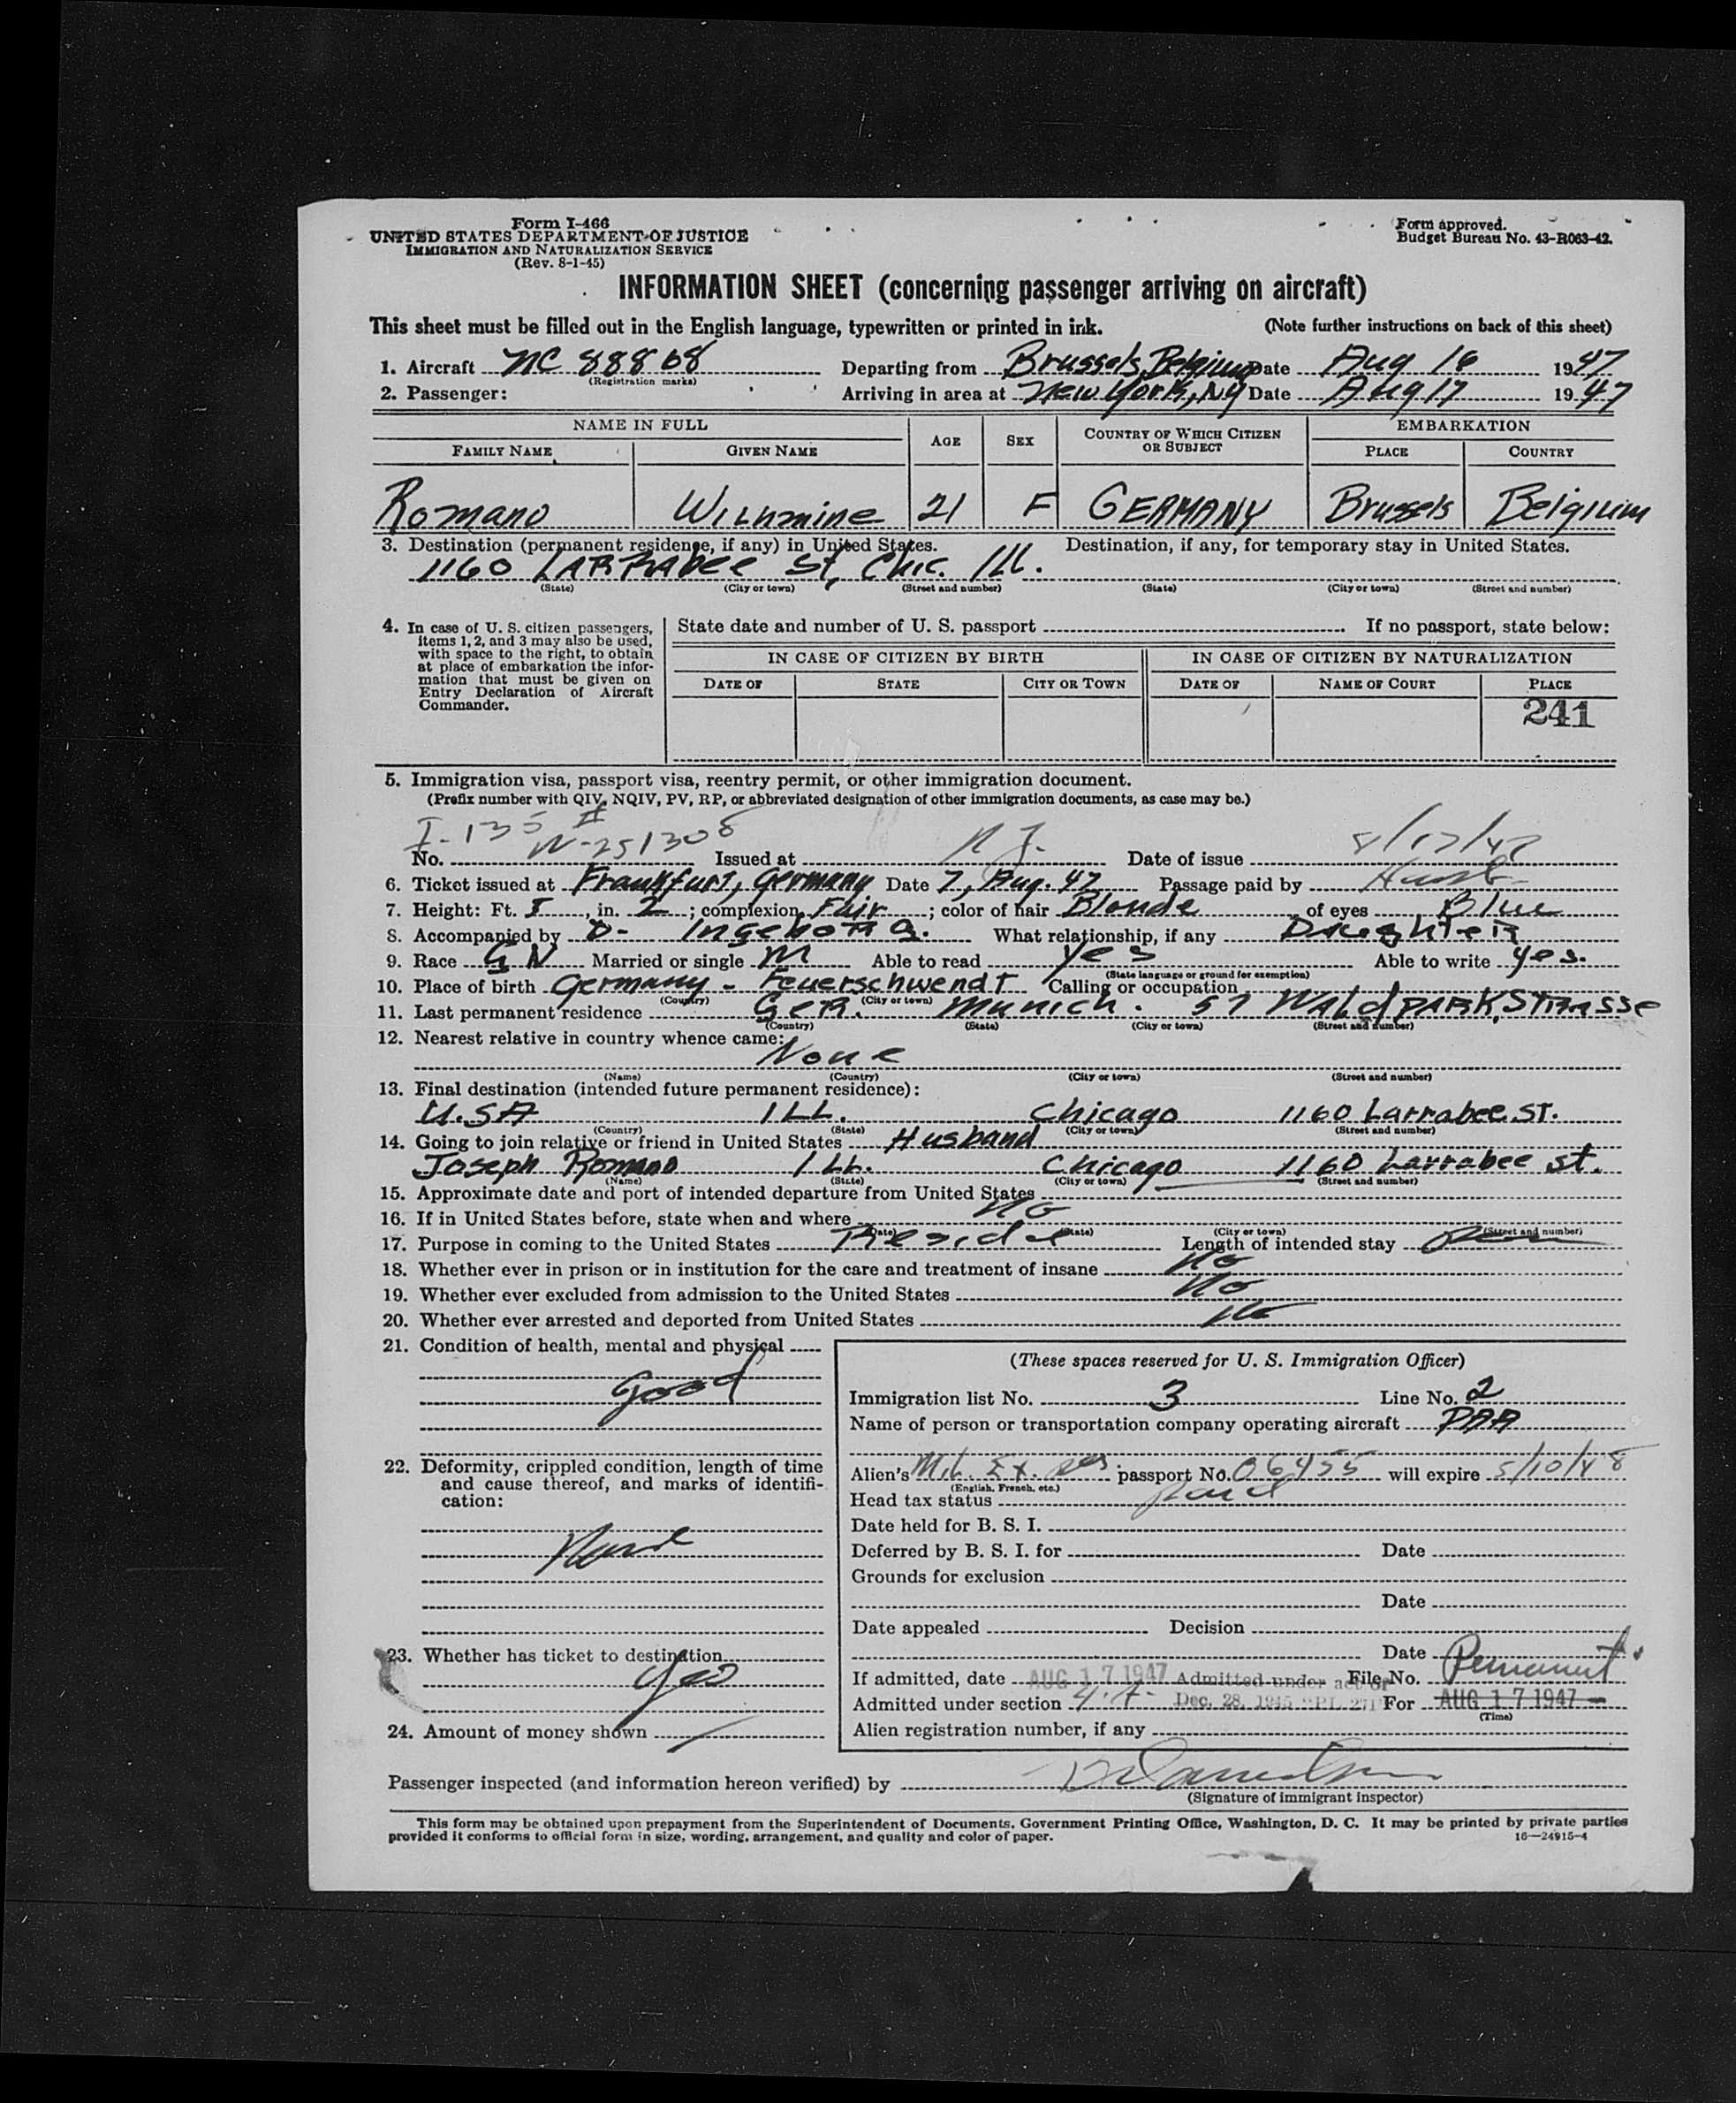 Form I-466
UNITED STATES DEPARTMENT OF JUSTICE
IMMIGRATION AND NATURALIZATION SERVICE
(Rev. 8-1-45)
Form approved.
Budget Bureau No. 43-R063-42.
INFORMATION SHEET (concerning passenger arriving on aircraft)
This sheet must be filled out in the English language, typewritten or printed in ink. (Note further instructions on back of this sheet)
1. Aircraft NC 88868 Departing from Brussels, Belgium Date Aug 16 1947
(Registration marks)
2. Passenger: Arriving in area at New York, NY Date Aug 17 1947
NAME IN FULL AGE SEX COUNTRY OF WHICH CITIZEN OR SUBJECT EMBARKATION
FAMILY NAME GIVEN NAME PLACE COUNTRY
Romano Wilhmine 21 F GERMANY Brussels Belgium
3. Destination (permanent residence, if any) in United States. Destination, if any, for temporary stay in United States.
1160 LARRABEE St, Chic. Ill.
(State) (City or town) (Street and number) (State) (City or town) (Street and number)
4. In case of U. S. citizen passengers, items 1, 2, and 3 may also be used, with space to the right, to obtain at place of embarkation the information that must be given on Entry Declaration of Aircraft Commander.
State date and number of U. S. passport If no passport, state below:
IN CASE OF CITIZEN BY BIRTH IN CASE OF CITIZEN BY NATURALIZATION
DATE OF STATE CITY OR TOWN DATE OF NAME OF COURT PLACE
241
5. Immigration visa, passport visa, reentry permit, or other immigration document.
(Prefix number with QIV, NQIV, PV, RP, or abbreviated designation of other immigration documents, as case may be.)
I-135 #
No. W-251308 Issued at Date of issue 8/17/47
6. Ticket issued at Frankfurt, Germany Date 7, Aug. 47 Passage paid by Husb
7. Height: Ft. 5, in. 2; complexion Fair; color of hair Blonde of eyes Blue
8. Accompanied by D- Ingeborg G. What relationship, if any Daughter
9. Race GN Married or single M Able to read yes Able to write yes.
(State language or ground for exemption)
10. Place of birth Germany - Feuerschwendt Calling or occupation
(Country) (City or town)
11. Last permanent residence GER. Munich. 57 WALdPARK, STRASSe
(Country) (State) (City or town) (Street and number)
12. Nearest relative in country whence came:
None
(Name) (Country) (City or town) (Street and number)
13. Final destination (intended future permanent residence):
U.SA ILL. Chicago 1160 Larrabee ST.
(Country) (State) (City or town) (Street and number)
14. Going to join relative or friend in United States Husband
Joseph Romano ILL. Chicago 1160 Larrabee st.
(Name) (State) (City or town) (Street and number)
15. Approximate date and port of intended departure from United States
16. If in United States before, state when and where No
(Date) (State) (City or town) (Street and number)
17. Purpose in coming to the United States Reside Length of intended stay
18. Whether ever in prison or in institution for the care and treatment of insane No
19. Whether ever excluded from admission to the United States No
20. Whether ever arrested and deported from United States No
21. Condition of health, mental and physical
Good
22. Deformity, crippled condition, length of time and cause thereof, and marks of identification:
None
23. Whether has ticket to destination
Yes
24. Amount of money shown
(These spaces reserved for U. S. Immigration Officer)
Immigration list No. 3 Line No. 2
Name of person or transportation company operating aircraft PAA
Alien's Mil. Ex. passport No. 06455 will expire 5/10/48
(English, French, etc.)
Head tax status Paid
Date held for B. S. I.
Deferred by B. S. I. for Date
Grounds for exclusion
Date
Date appealed Decision
Date
If admitted, date AUG 17 1947 Admitted under act of File No. Permanent
Admitted under section Dec. 28, 1945 PL 271 For AUG 17 1947
(Time)
Alien registration number, if any
Passenger inspected (and information hereon verified) by
(Signature of immigrant inspector)
This form may be obtained upon prepayment from the Superintendent of Documents, Government Printing Office, Washington, D. C. It may be printed by private parties
provided it conforms to official form in size, wording, arrangement, and quality and color of paper. 16—24915-4